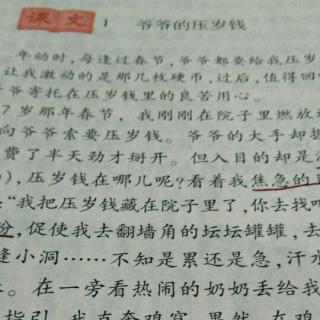 课文 1 爷爷的压岁钱
年幼时，每逢过春节，爷爷都要给我压岁
让我激动的是那几枚硬币，过后，值得回
爷寄托在压岁钱里的良苦用心。
7岁那年春节，我刚刚在院子里燃放
向爷爷索要压岁钱。爷爷的大手却
费了半天劲才掰开。但入目的却是
），压岁钱在哪儿呢？看着我焦急的
“我把压岁钱藏在院子里了，你去找
，促使我去翻墙角的坛坛罐罐，去
缝小洞……不知是累还是急，汗
。在一旁看热闹的奶奶丢给我
指引，我直奔鸡窝，果然，在鸡